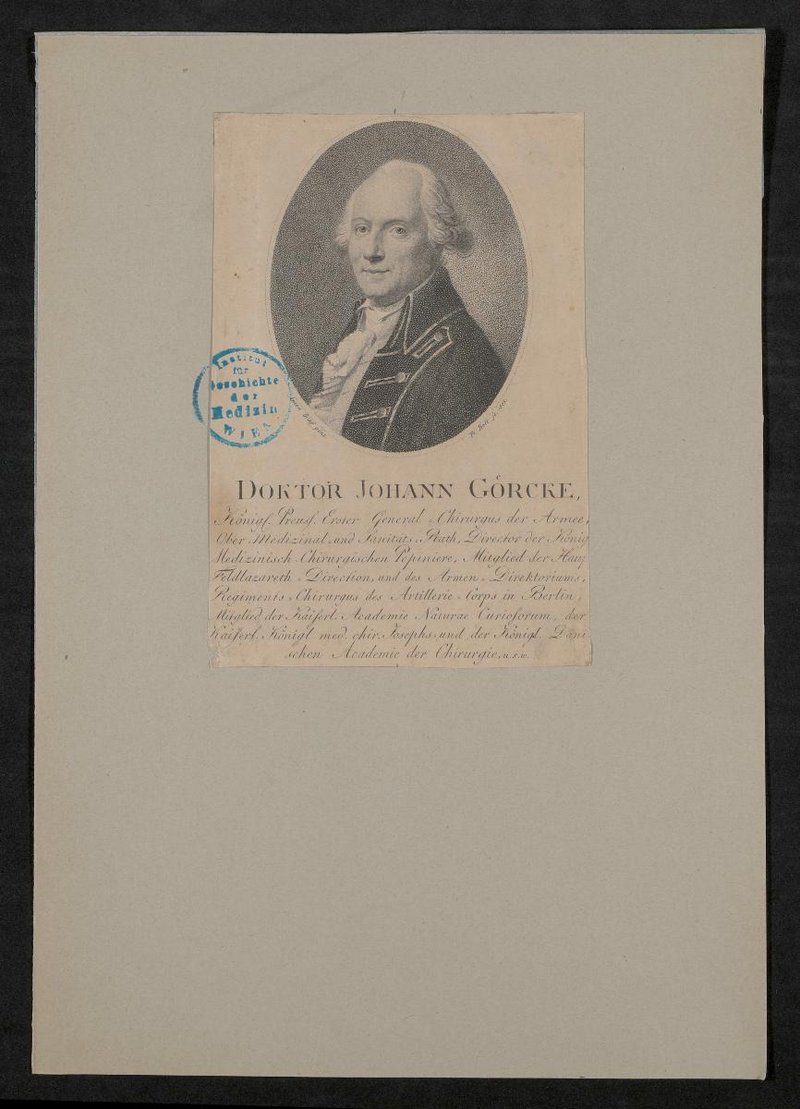 Institut
für
Geschichte
der
Medizin
WIEN
DOKTOR JOHANN GÖRCKE,
Königl. Preusl. Erster General-Chirurgus der Armee,
Ober-Medizinal-und Sanitäts-Rath, Director der König
Medizinisch-Chirurgischen Pepiniere, Mitglied der Haup
Feldlazareth-Direction, und des Armen-Direktoriums,
Regiments-Chirurgus des Artillerie-Corps in Berlin,
Mitglied der Kaiserl. Academie Naturae Curiosorum, der
Kaiserl. Königl. med. chir. Josephs-und der Königl. Däni
schen Academie der Chirurgie, u.s.w.